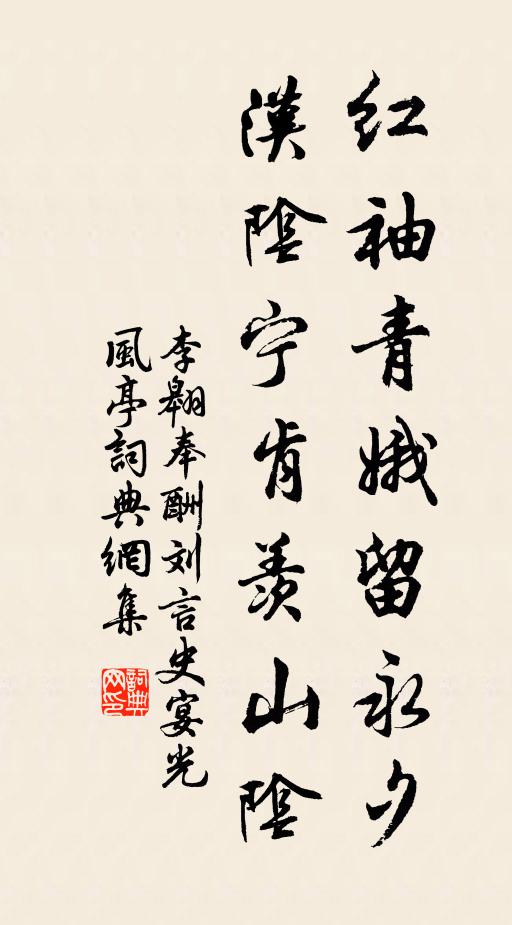 红袖青娥留永夕
漢陰宁肯羨山陰
李翱奉酬刘言史宴光
風亭詞典網集
詞典网印